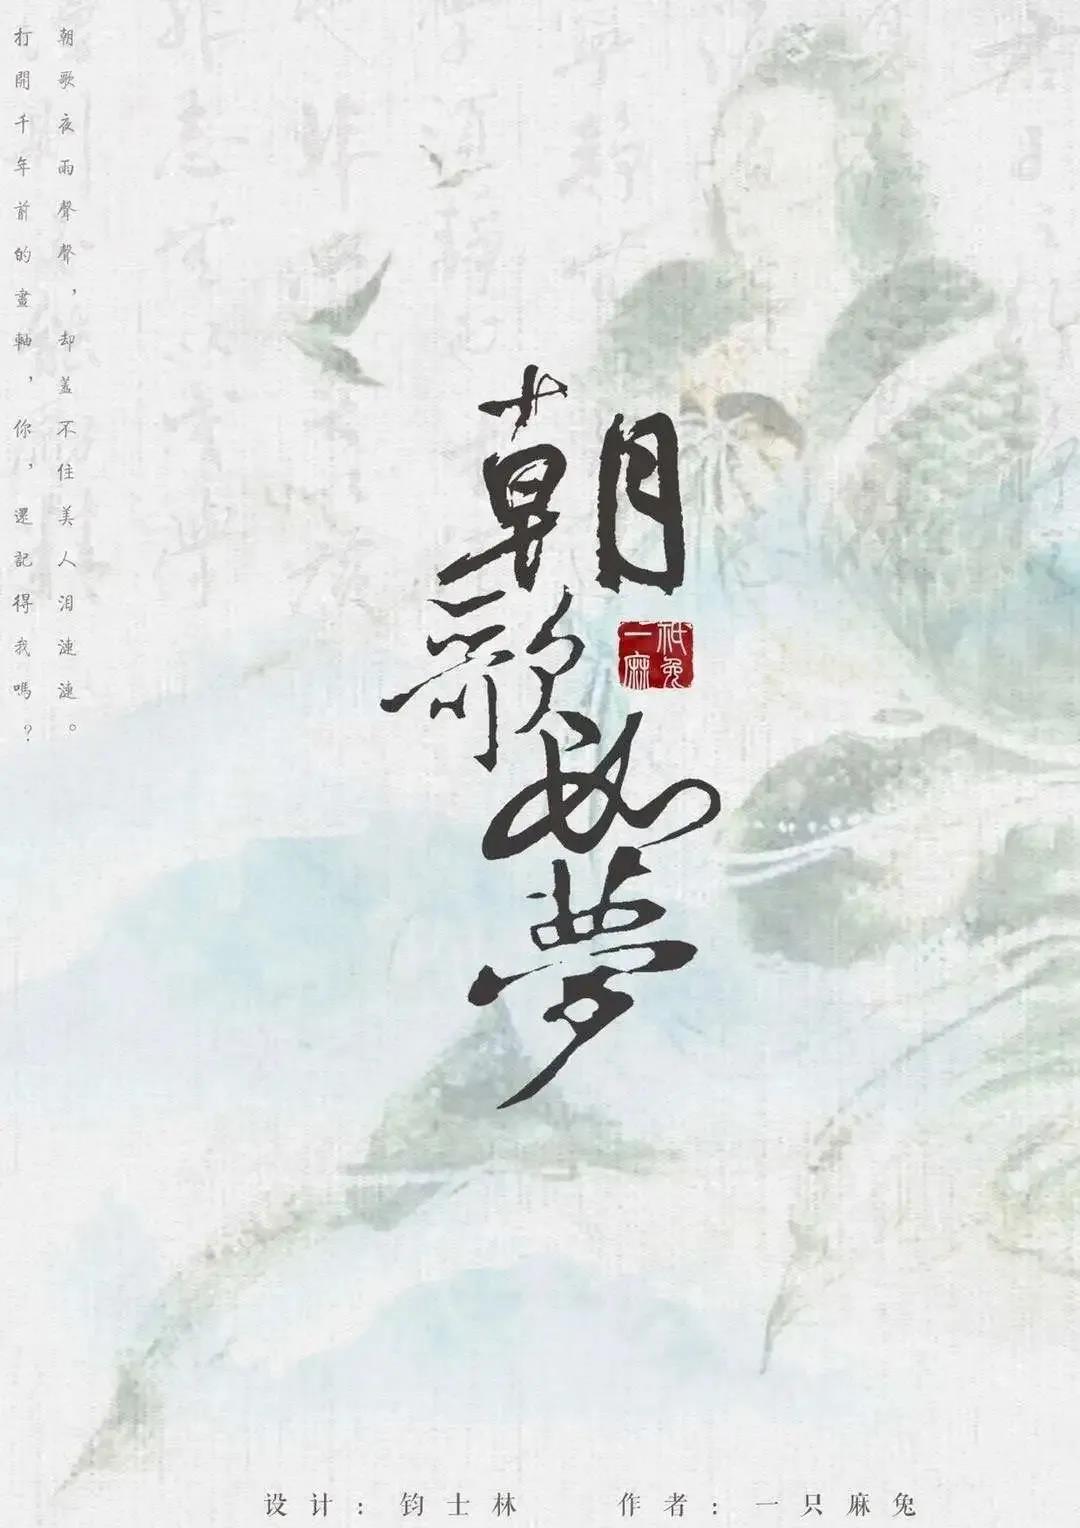 朝歌夜雨聲聲，却蓋不住美人泪漣漣。
打開千年前的畫軸，你，還記得我嗎？
朝歌如夢
一祇麻兔
设计：钧士林
作者：一只麻兔